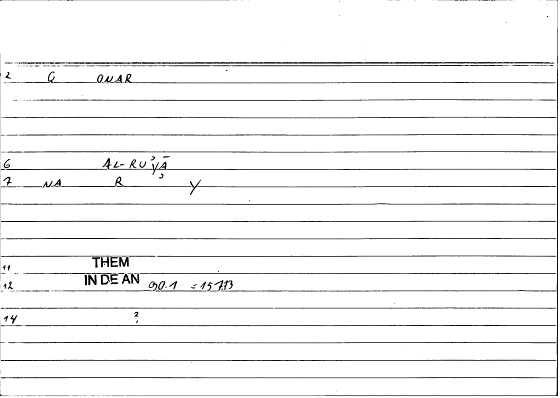 2 G ONAR
6 AL-RU'YĀ
7 NA R ' Y
11 THEM
12 IN DE AN 90.1 = 15713
14 ?